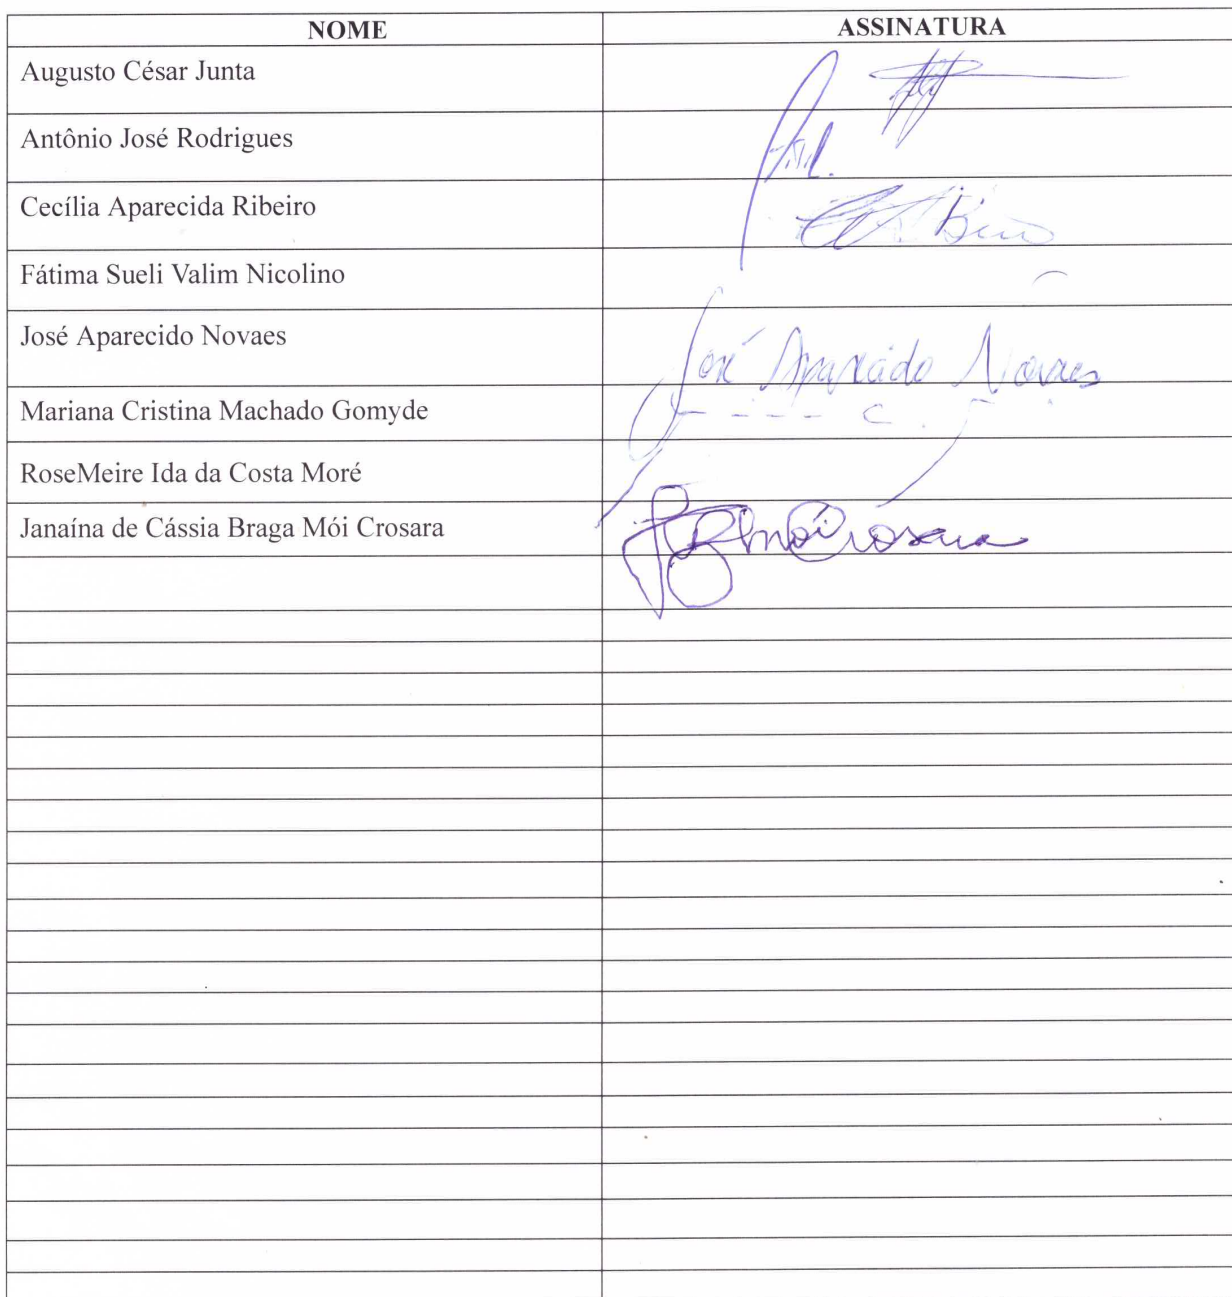 NOME ASSINATURA
Augusto César Junta
Antônio José Rodrigues
Cecília Aparecida Ribeiro
Fátima Sueli Valim Nicolino
José Aparecido Novaes José Aparecido Novaes
Mariana Cristina Machado Gomyde
RoseMeire Ida da Costa Moré
Janaína de Cássia Braga Mói Crosara